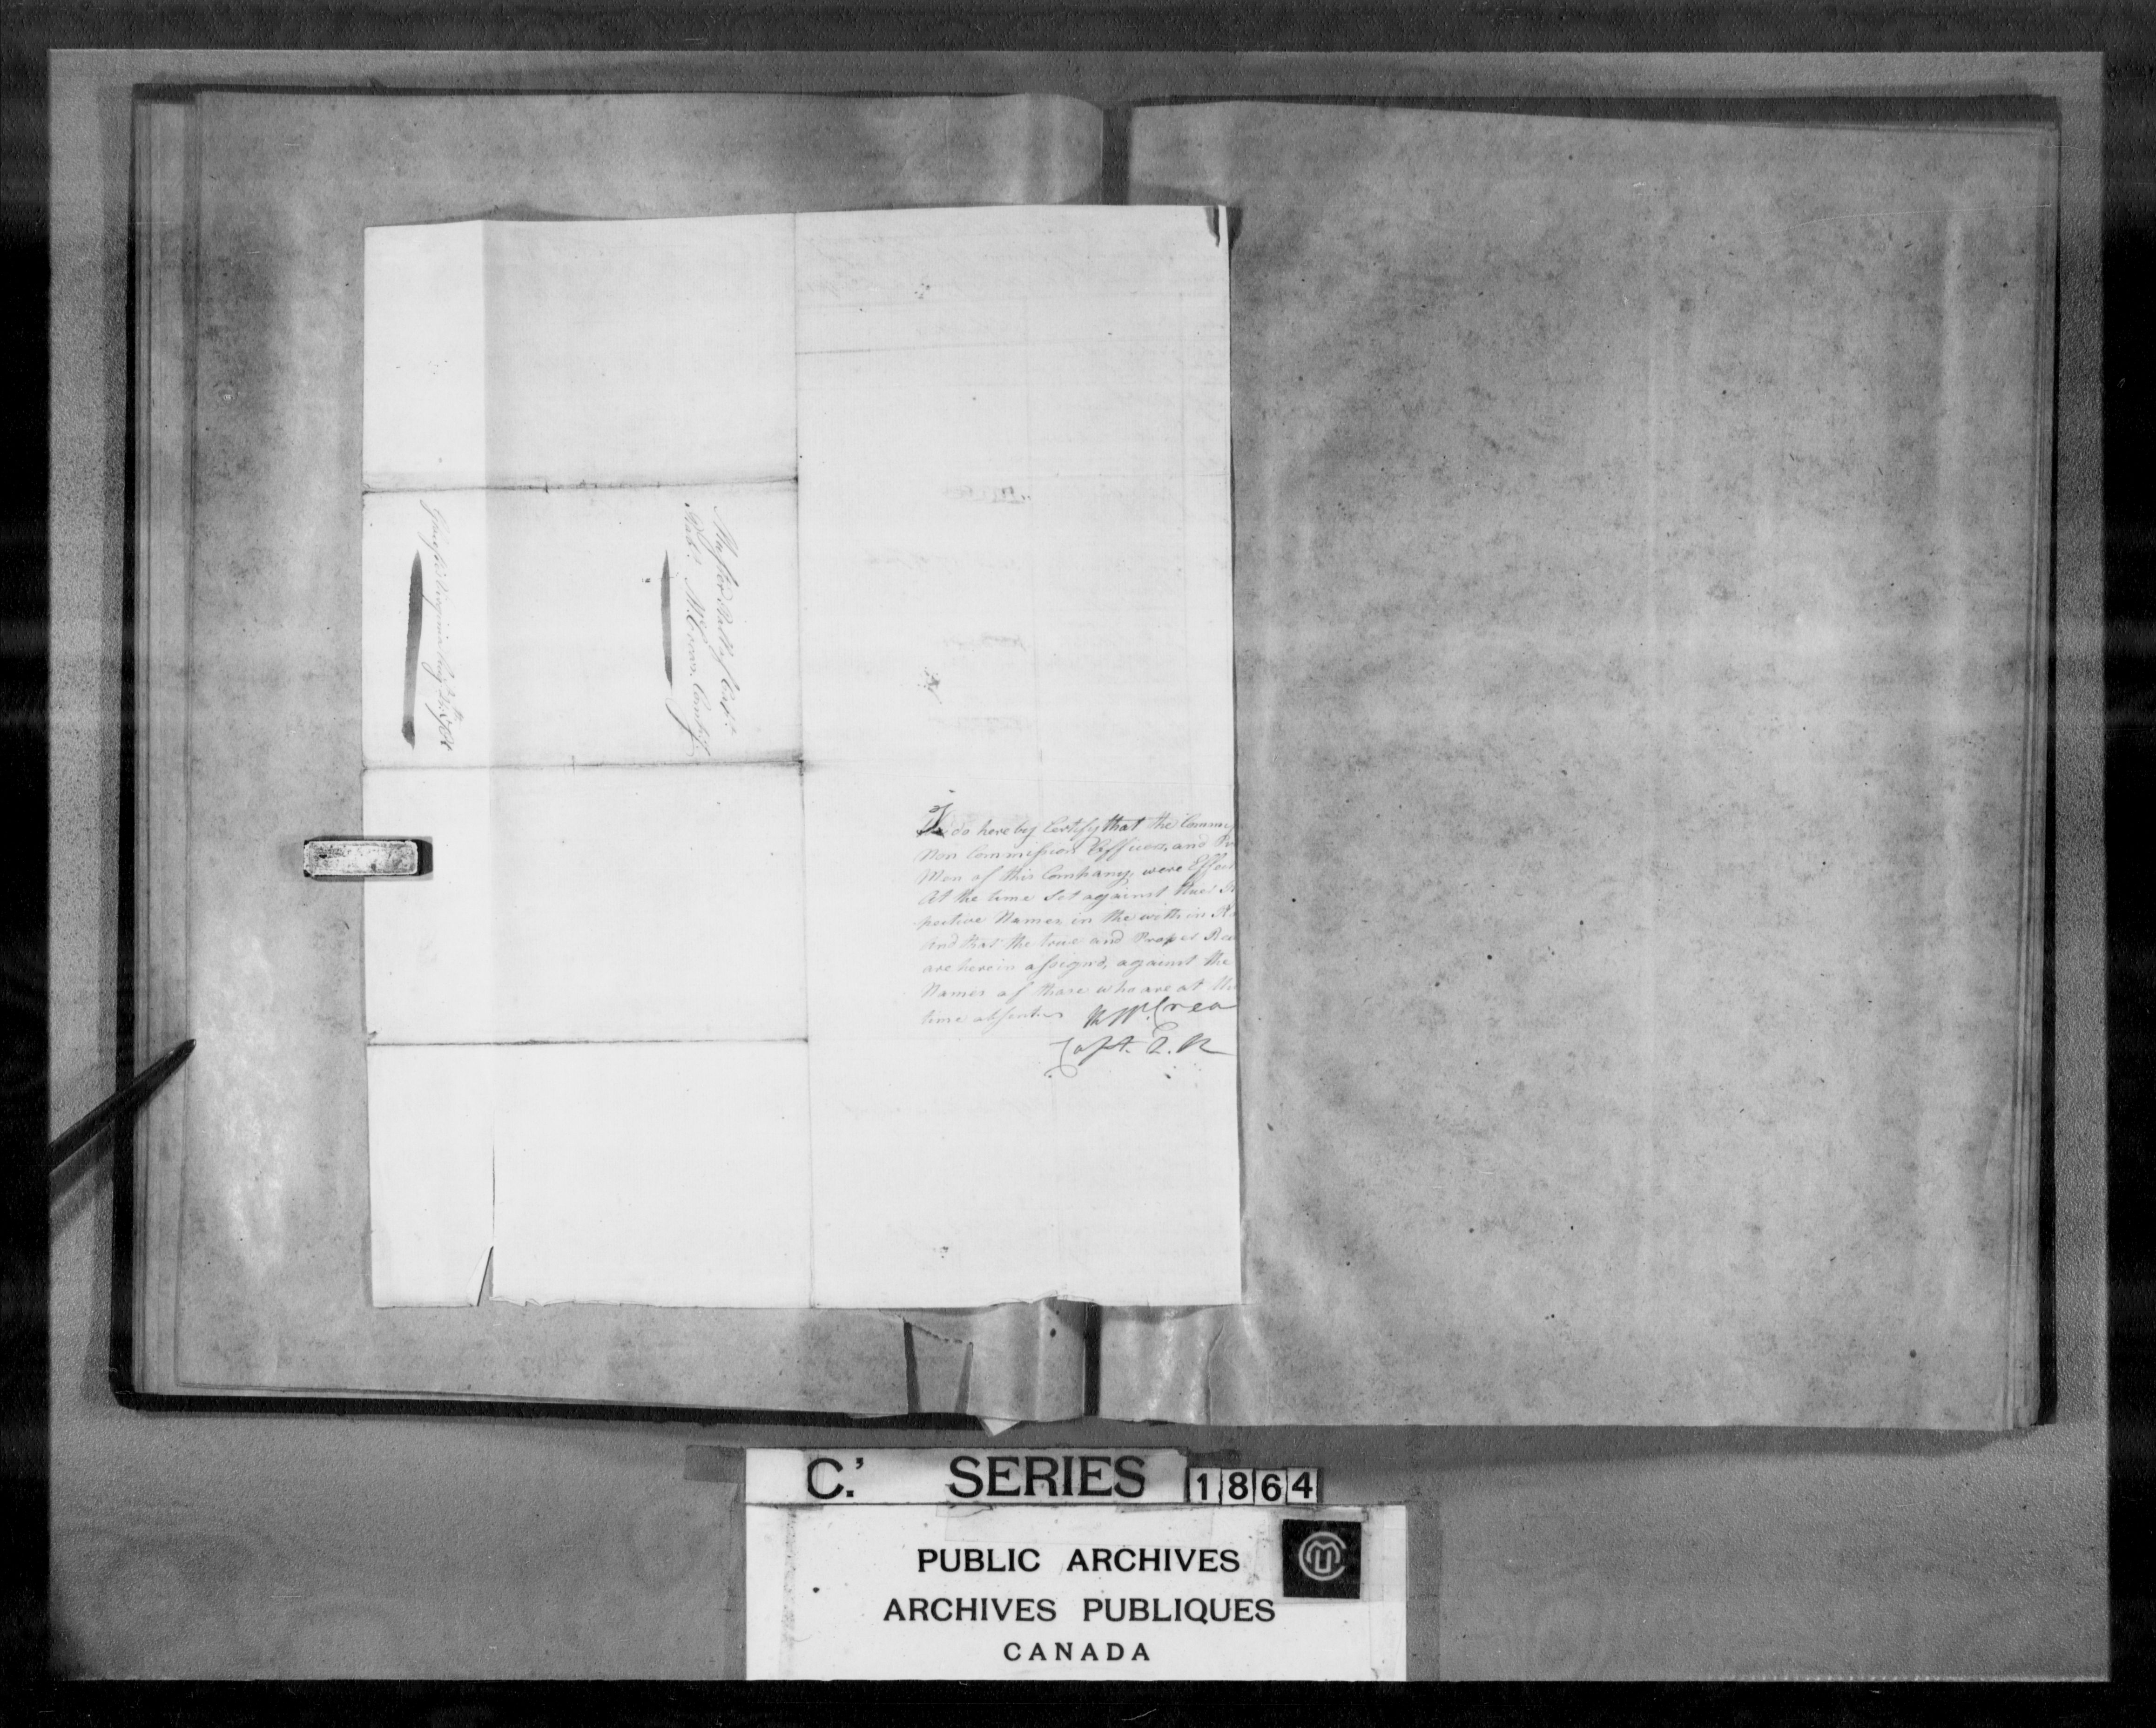 Muster Roll of Capt.
Rob.t McCrea's Comp.y
Queen's Virginia Aug.t 24th
I do hereby Certify that the Commis
Non Commission Officers, and Pri
Men of this Company, were Effect
At the time Set against thier Re
pective Names in the within Ro
And that the true and Proper Rea
are herein assignd, against the
Names of those who are at the
time absent
R McCrea
Capt. Q. R
C. SERIES 1864
PUBLIC ARCHIVES
ARCHIVES PUBLIQUES
CANADA